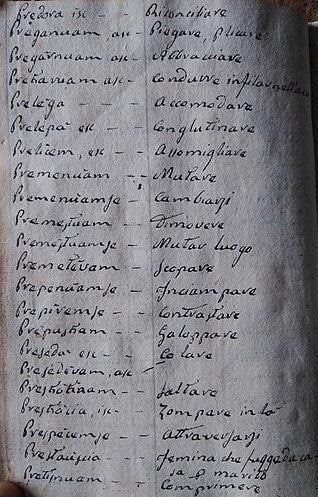 Predova isc - - Riconciliare
Preganuam, asc - Piegare, plicare
Pregarnuam asc - Abbraciare
Prekaruam asc - condurre in filar nell'aco
Prelega - - Accomodare
Prelepà esc - - conglutinare
Prelicem, esc - - Assomigliare
Premenuam - - Mutare
Premenuamse - - Cambiarsi
Premestuam - - Dimovere
Premestuamse - - Mutar luogo
Premetévam - - Scopare
Prepenuamse - - Inciampare
Prepiremse - - Contrastare
Prepuskam - - Galoppare
Preseda esc - - Colare
Presedévam, asc -
- - Saltare
isc - - Zompare in là
Prespécemse - - Attraversarsi
- - Femina che fugge da ca-
sa p marito
Pretisnuam - - Comprimere